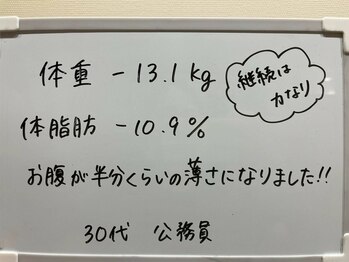 体重 -13.1kg
継続は
力なり
体脂肪 -10.9%
お腹が半分くらいの薄さになりました!!
30代 公務員